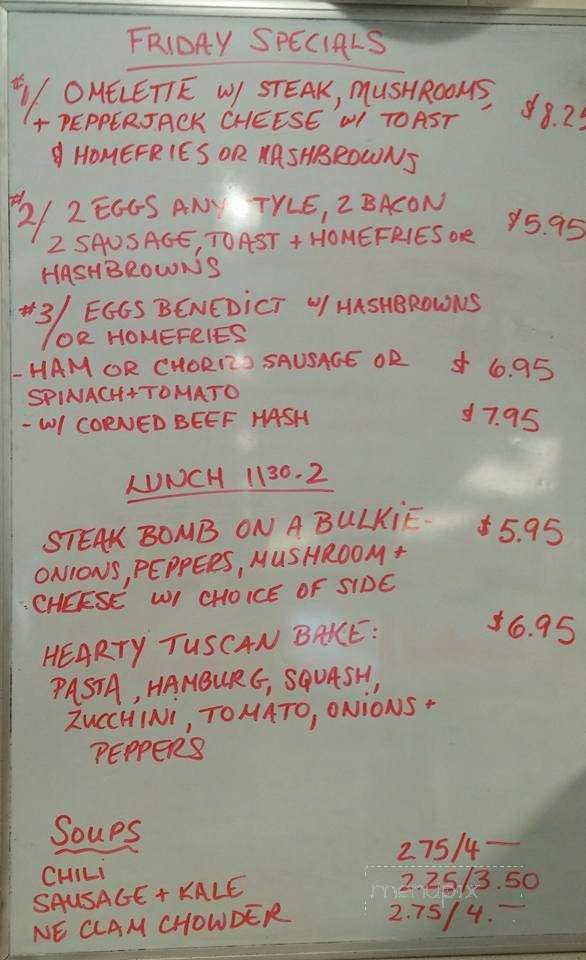 FRIDAY SPECIALS
#1/ OMELETTE W/ STEAK, MUSHROOMS,
+ PEPPERJACK CHEESE W/ TOAST $8.25
& HOMEFRIES OR HASHBROWNS
#2/ 2 EGGS ANY STYLE, 2 BACON $5.95
2 SAUSAGE, TOAST + HOMEFRIES OR
HASHBROWNS
#3/ EGGS BENEDICT W/ HASHBROWNS
OR HOMEFRIES
- HAM OR CHORIZO SAUSAGE OR $6.95
SPINACH + TOMATO
- W/ CORNED BEEF HASH $7.95
LUNCH 1130-2
STEAK BOMB ON A BULKIE- $5.95
ONIONS, PEPPERS, MUSHROOM +
CHEESE W/ CHOICE OF SIDE
HEARTY TUSCAN BAKE: $6.95
PASTA, HAMBURG, SQUASH,
ZUCCHINI, TOMATO, ONIONS +
PEPPERS
SOUPS
CHILI 275/4—
SAUSAGE + KALE 2.25/3.50
NE CLAM CHOWDER 2.75/4.—
menupix